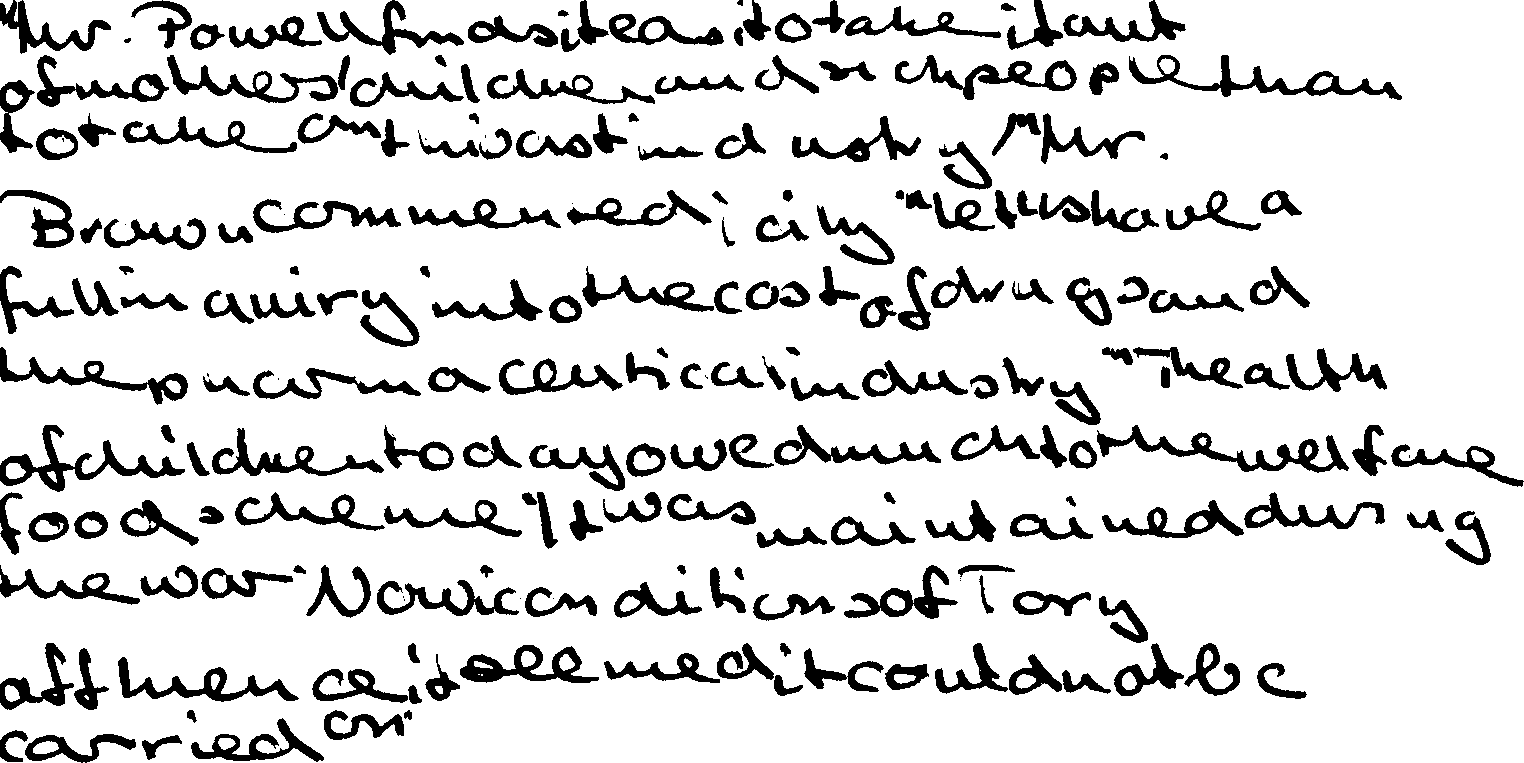 "Mr. Powell finds it easi to take it out
of mothers, children and sick people than
to take on thi vast industry," Mr.
Brown commented icily. "Let us have a
full inquiry into the cost of drugs and
the pharmaceutical industry." The health
of children today owed much to the welfare
food scheme. It was maintained during
the war. Now in conditions of Tory
affluence it seemed it could not be
carried on.